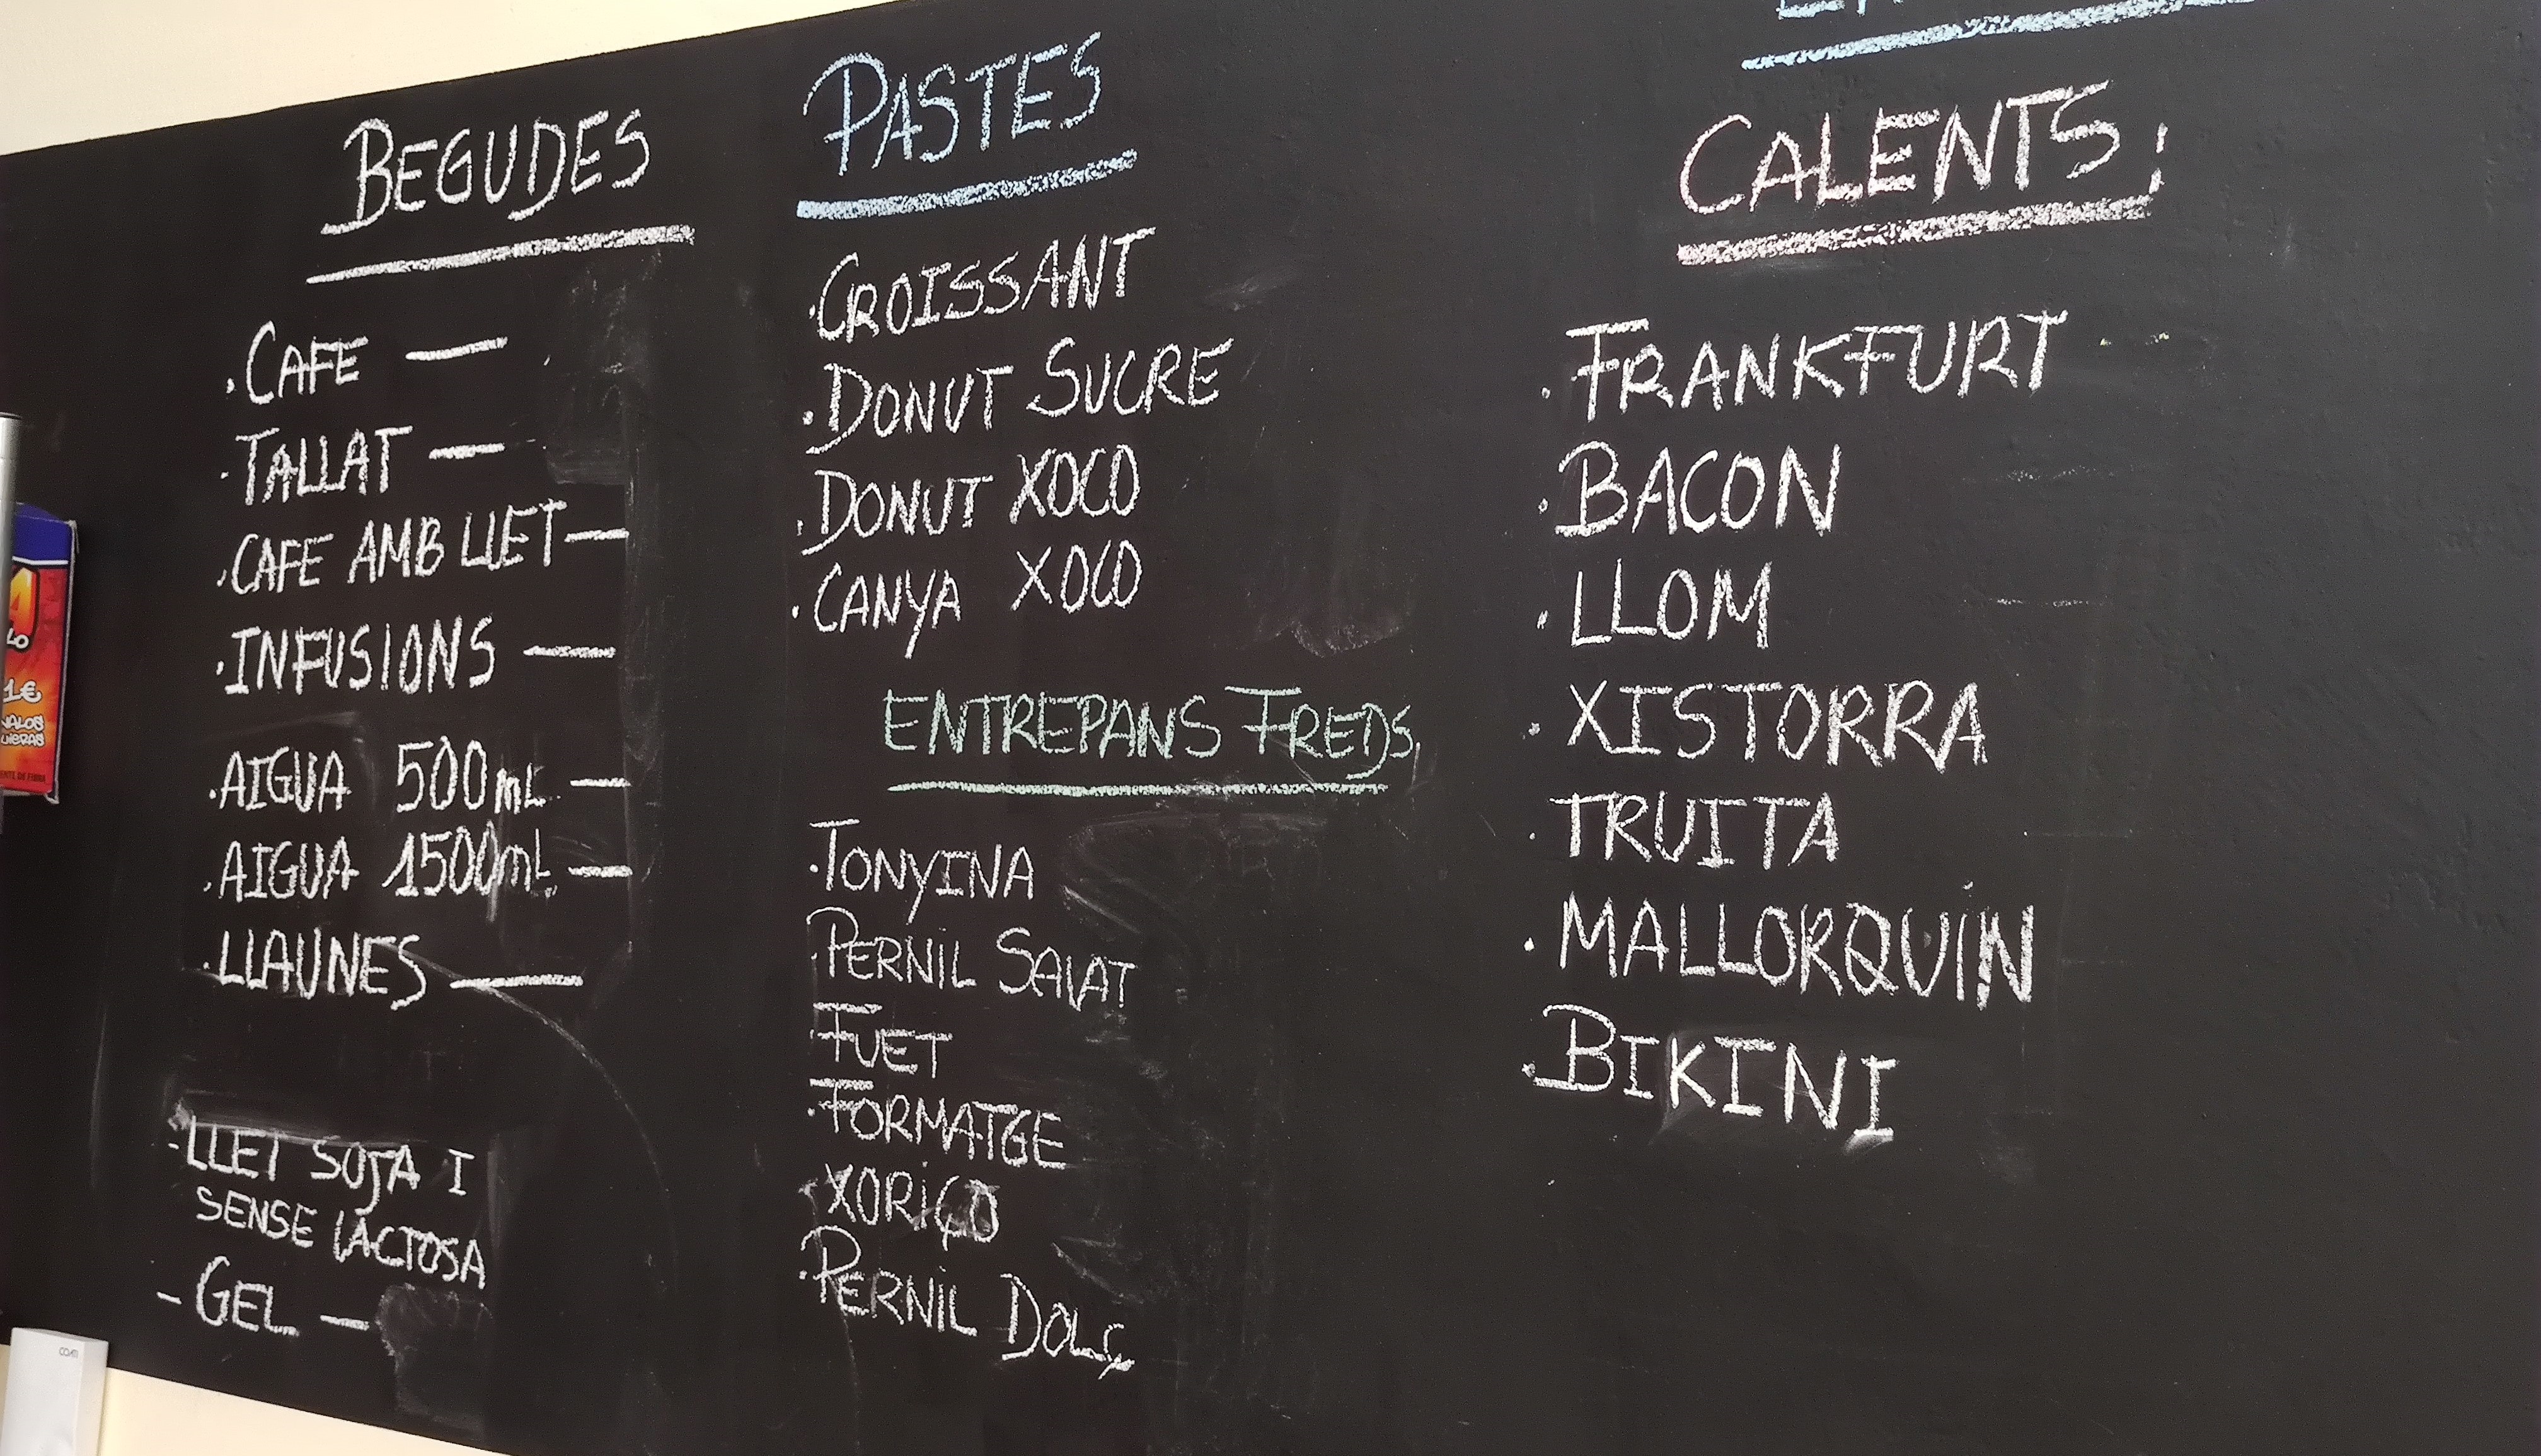 BEGUDES
.CAFE —
.TALLAT —
.CAFE AMB LLET—
.INFUSIONS —
.AIGUA 500mL —
.AIGUA 1500mL —
.LLAUNES —
-LLET SOJA I
SENSE LACTOSA
-GEL —
PASTES
.CROISSANT
.DONUT SUCRE
.DONUT XOCO
.CANYA XOCO
ENTREPANS FREDS
.TONYINA
.PERNIL SALAT
.FUET
.FORMATGE
.XORIÇO
.PERNIL DOLÇ
CALENTS;
.FRANKFURT
.BACON
.LLOM
.XISTORRA
.TRUITA
.MALLORQUÍN
.BIKINI
LO
1€
COATI